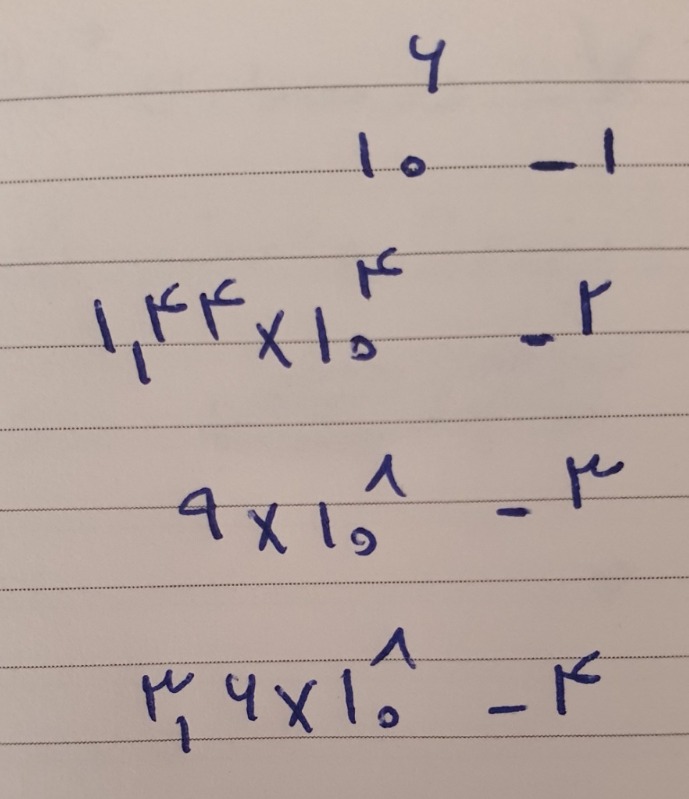 ۱- ۱۰^۶
۲- ۱,۴۴×۱۰^۴
۳- ۹×۱۰^۸
۴- ۳,۶×۱۰^۸